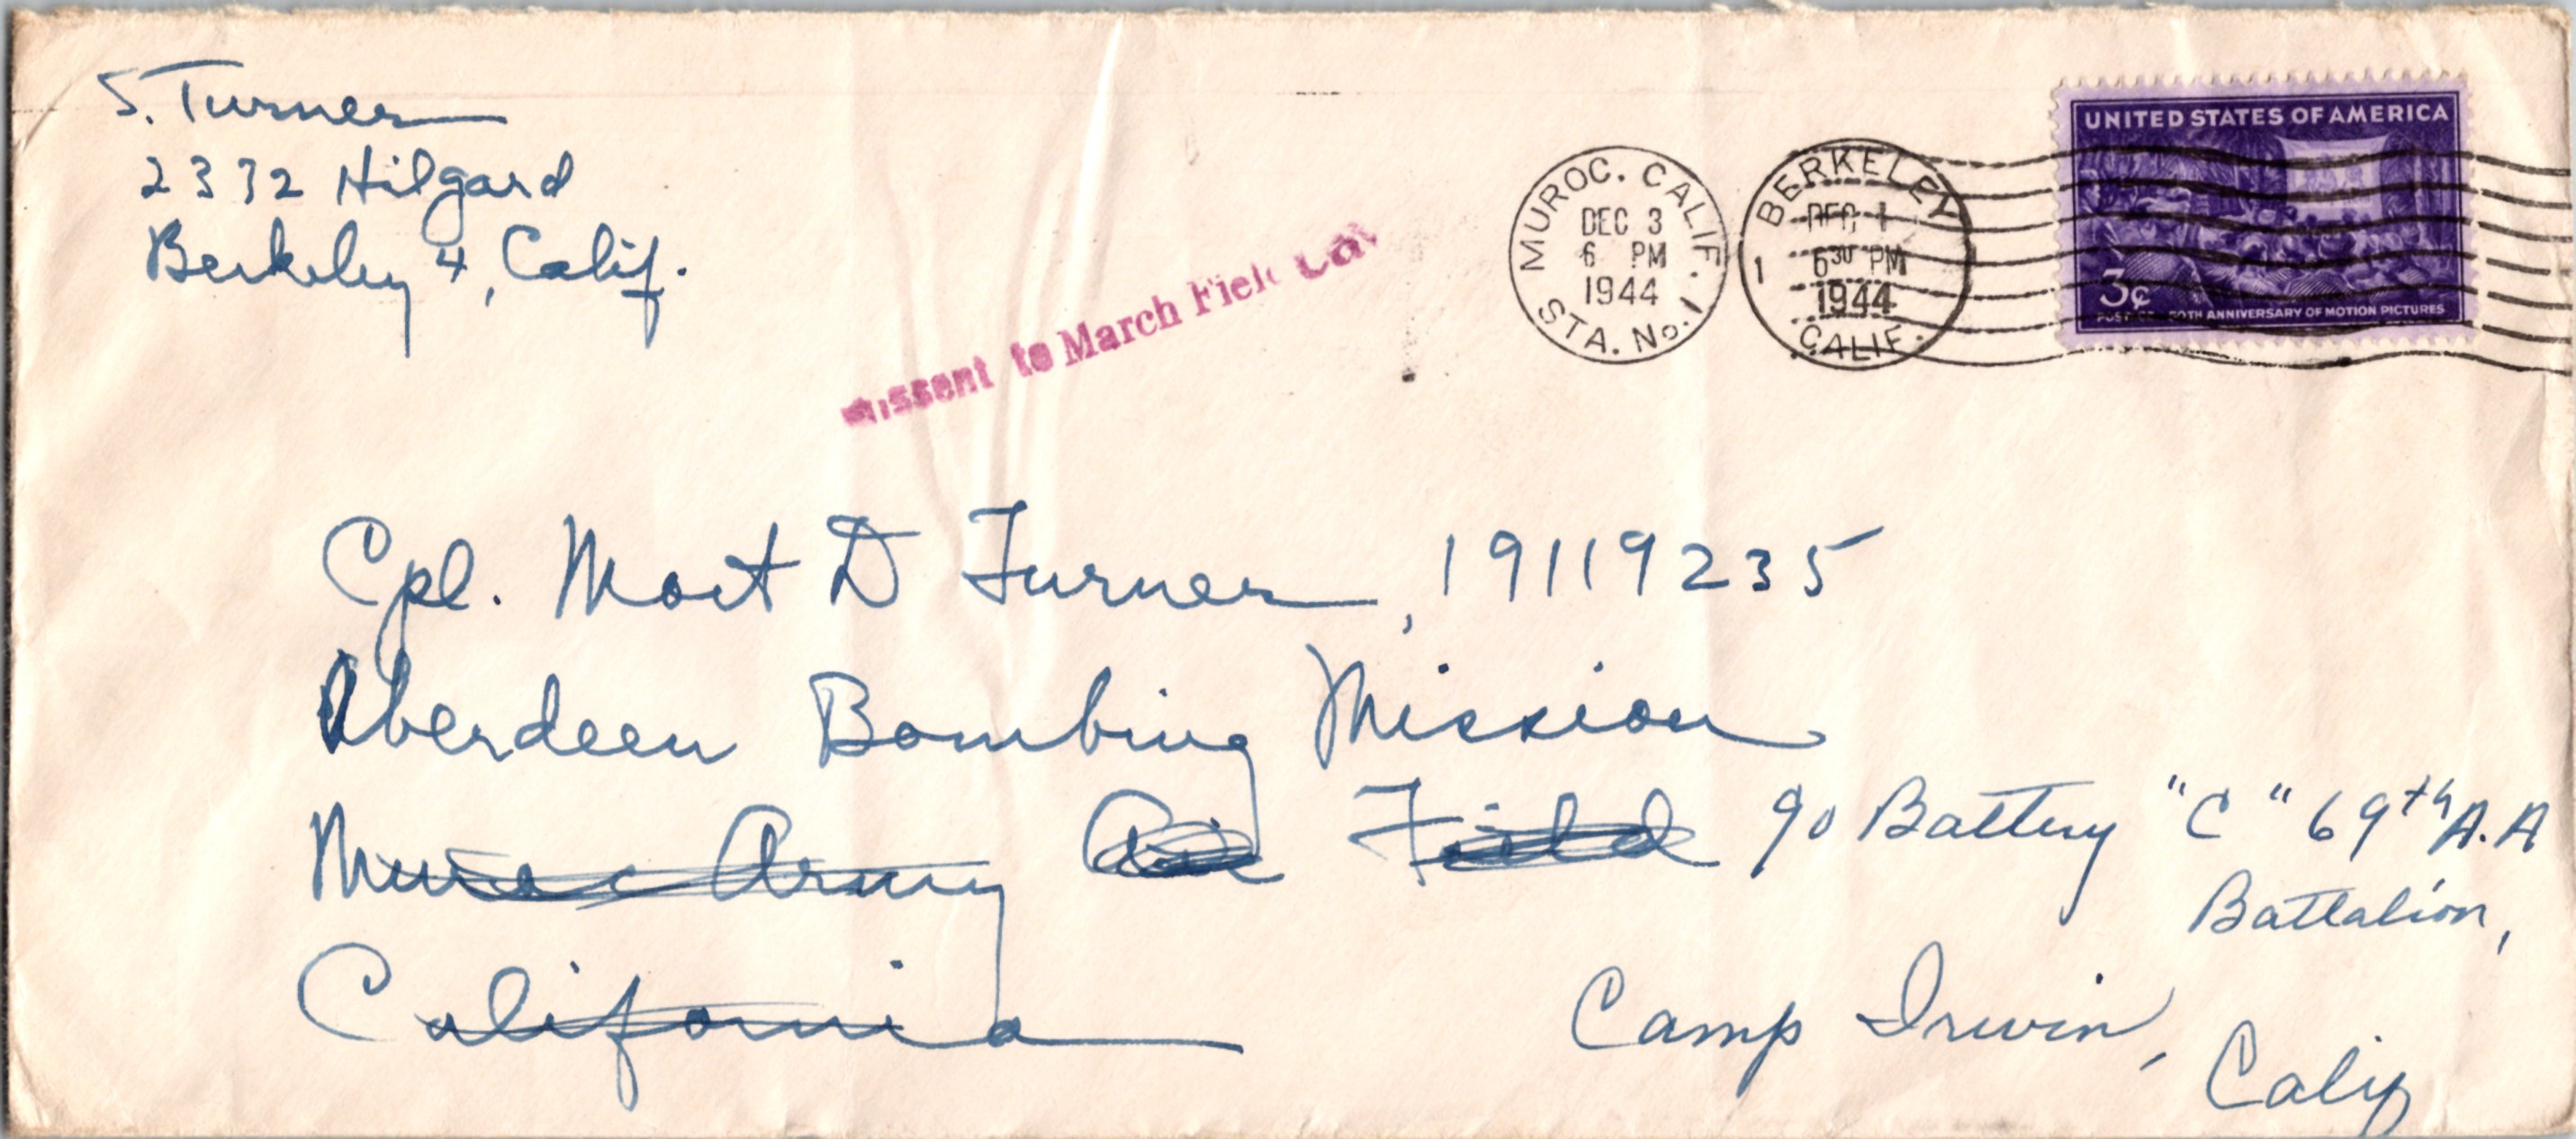 S. Turner
2332 Hilgard
Berkeley 4, Calif.
Missent to March Field Cal
MUROC. CALIF.
DEC 3
6 PM
1944
STA. No. 1
BERKELEY
1
DEC 1
6 30 PM
1944
CALIF.
UNITED STATES OF AMERICA
3¢
POSTAGE 50TH ANNIVERSARY OF MOTION PICTURES
Cpl. Mort D Turner, 19119235
Aberdeen Bombing Mission
Muroc Army Air Field
California
℅ Battery "C" 69th A.A
Battalion,
Camp Irwin,
Calif